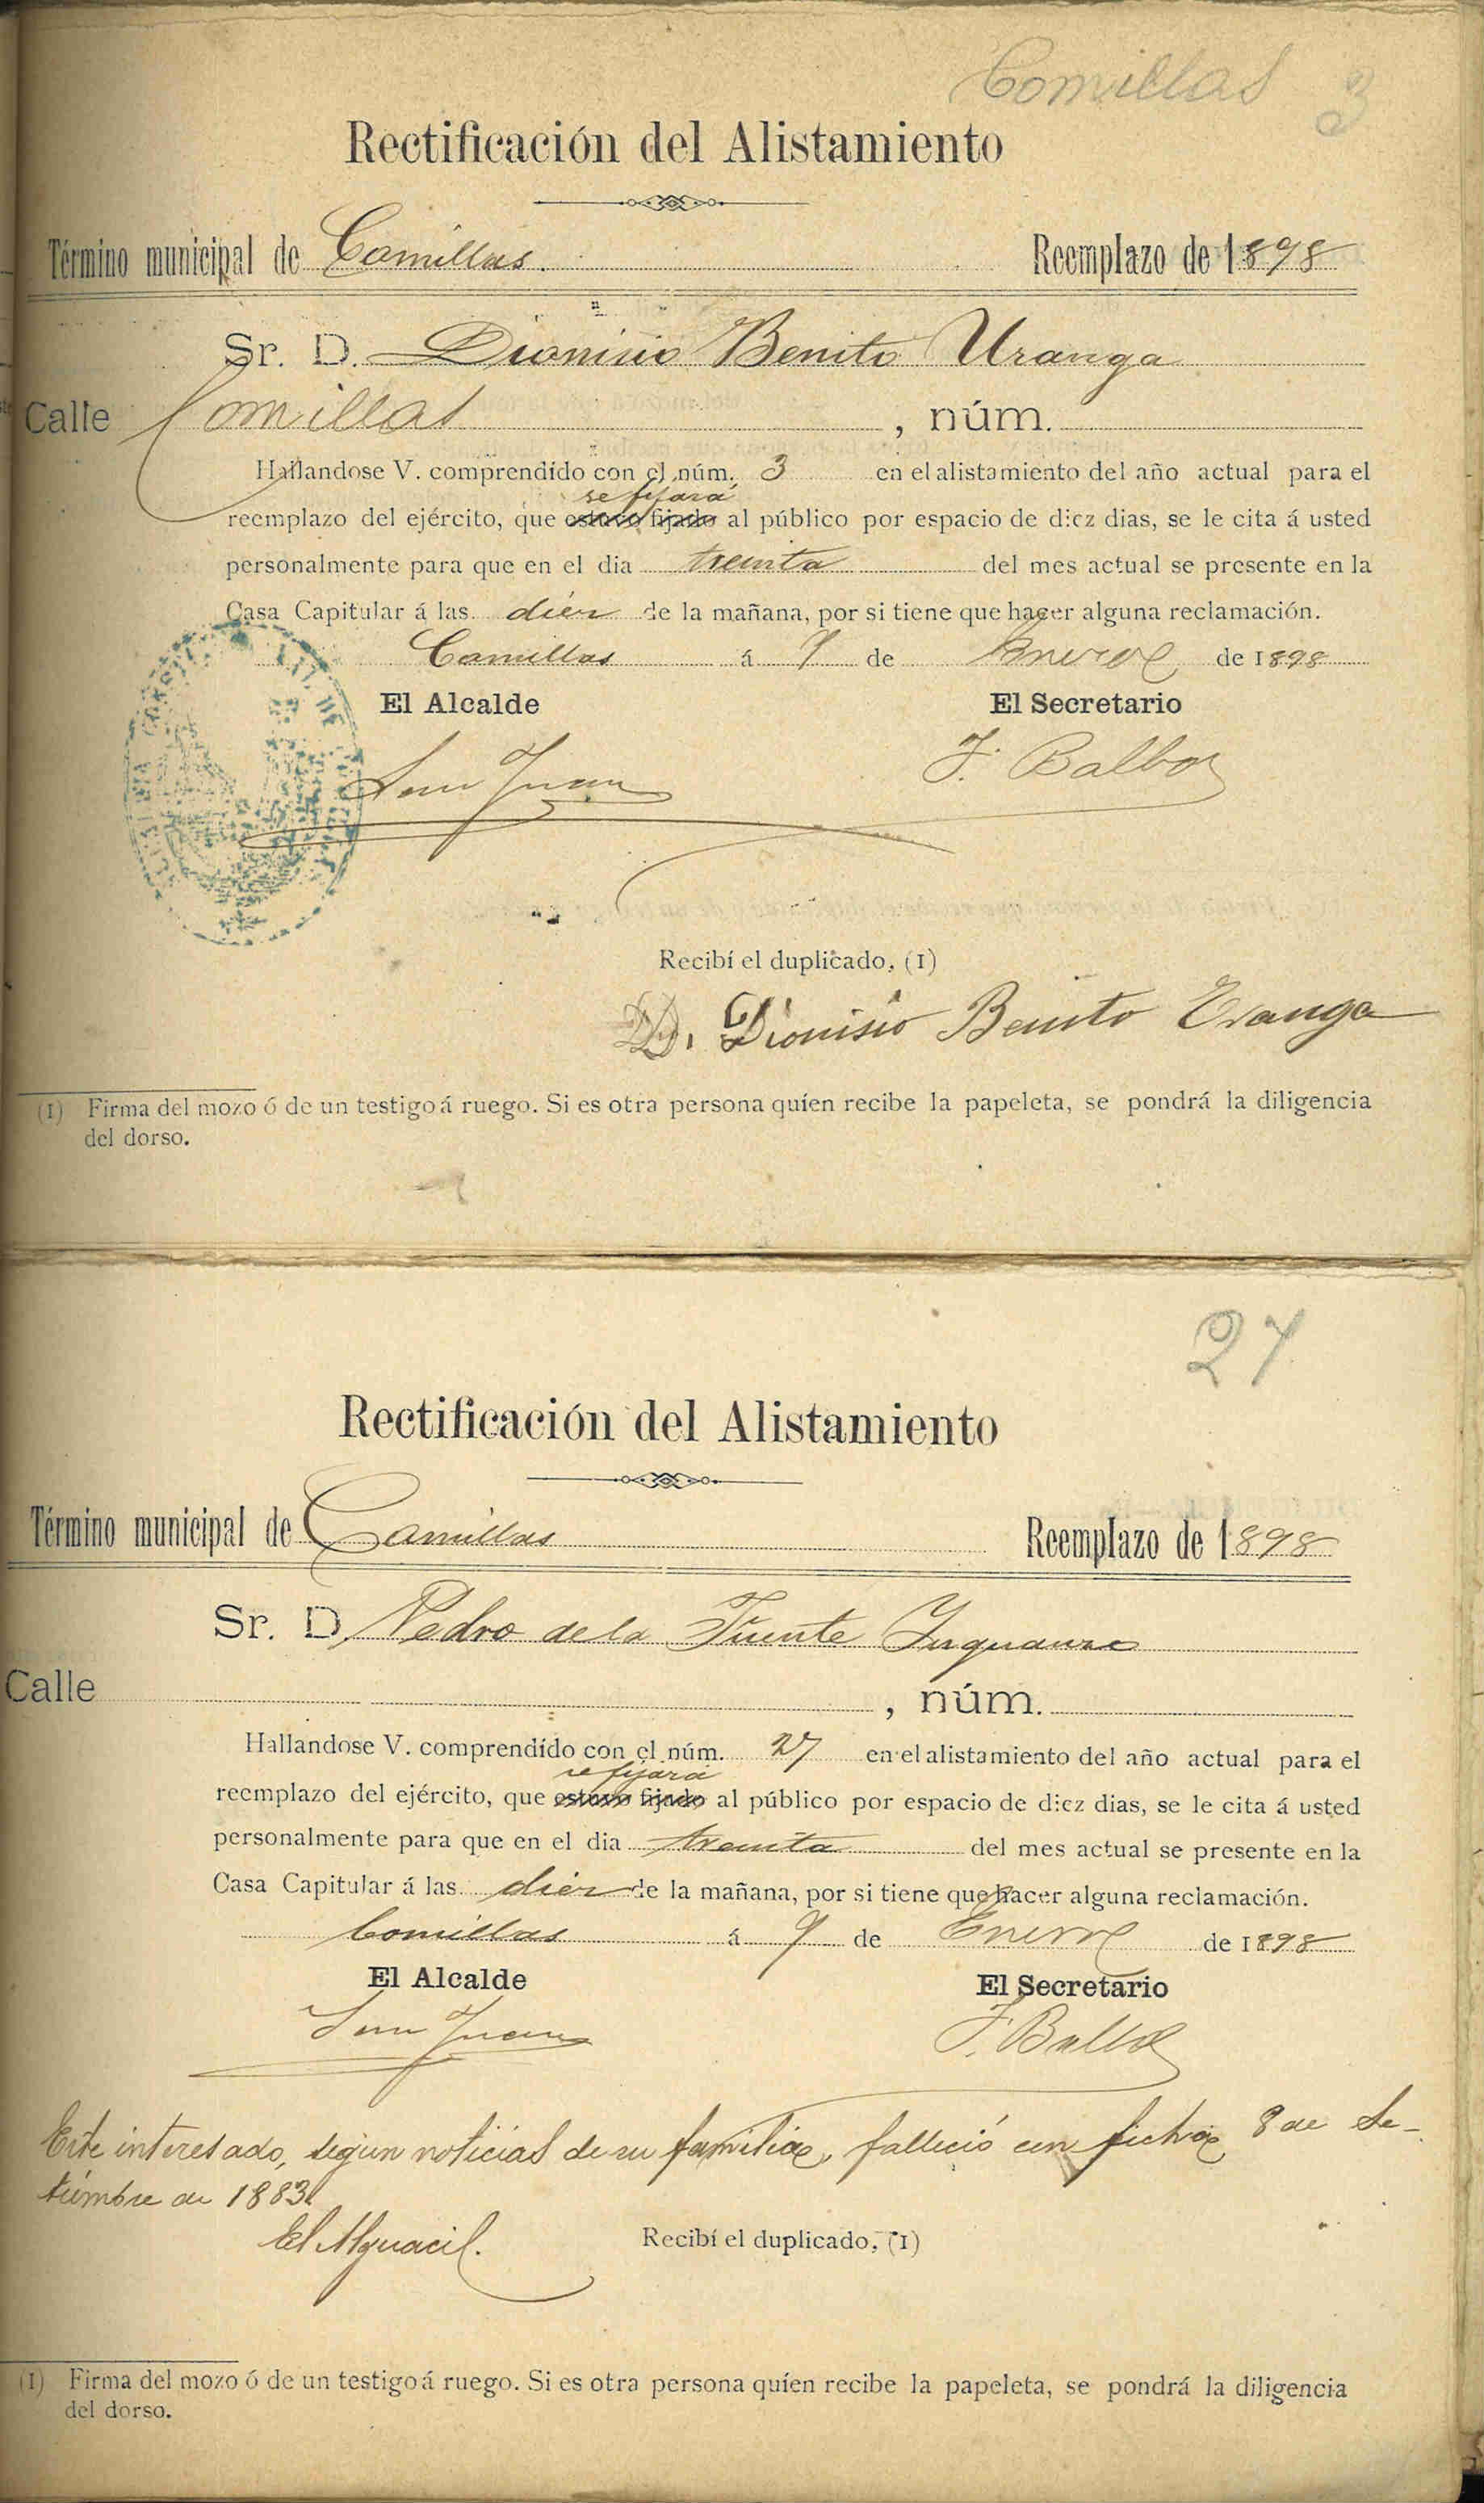 Comillas 3
Rectificación del Alistamiento
Término municipal de Comillas. Reemplazo de 1898
Sr. D. Dionisio Benito Uranga
Calle Comillas, núm.
Hallandose V. comprendido con el núm. 3 en el alistamiento del año actual para el
se fijará
reemplazo del ejército, que estuvo fijado al público por espacio de diez dias, se le cita á usted
personalmente para que en el dia treinta del mes actual se presente en la
Casa Capitular á las diez de la mañana, por si tiene que hacer alguna reclamación.
Comillas á 9 de Enero de 1898
El Alcalde El Secretario
San Juan F. Balbas
Recibí el duplicado, (1)
D. Dionisio Benito Uranga
(1) Firma del mozo ó de un testigo á ruego. Si es otra persona quíen recibe la papeleta, se pondrá la diligencia
del dorso.
27
Rectificación del Alistamiento
Término municipal de Comillas Reemplazo de 1898
Sr. D. Pedro de la Fuente Inguanzo
Calle , núm.
Hallandose V. comprendido con el núm. 27 en el alistamiento del año actual para el
se fijará
reemplazo del ejército, que estuvo fijado al público por espacio de diez dias, se le cita á usted
personalmente para que en el dia treinta del mes actual se presente en la
Casa Capitular á las diez de la mañana, por si tiene que hacer alguna reclamación.
Comillas á 9 de Enero de 1898
El Alcalde El Secretario
San Juan F. Balbas
Este interesado, segun noticias de su familia, falleció en 8 de Se-
tiembre de 1883
El Alguacil. Recibí el duplicado, (1)
(1) Firma del mozo ó de un testigo á ruego. Si es otra persona quíen recibe la papeleta, se pondrá la diligencia
del dorso.